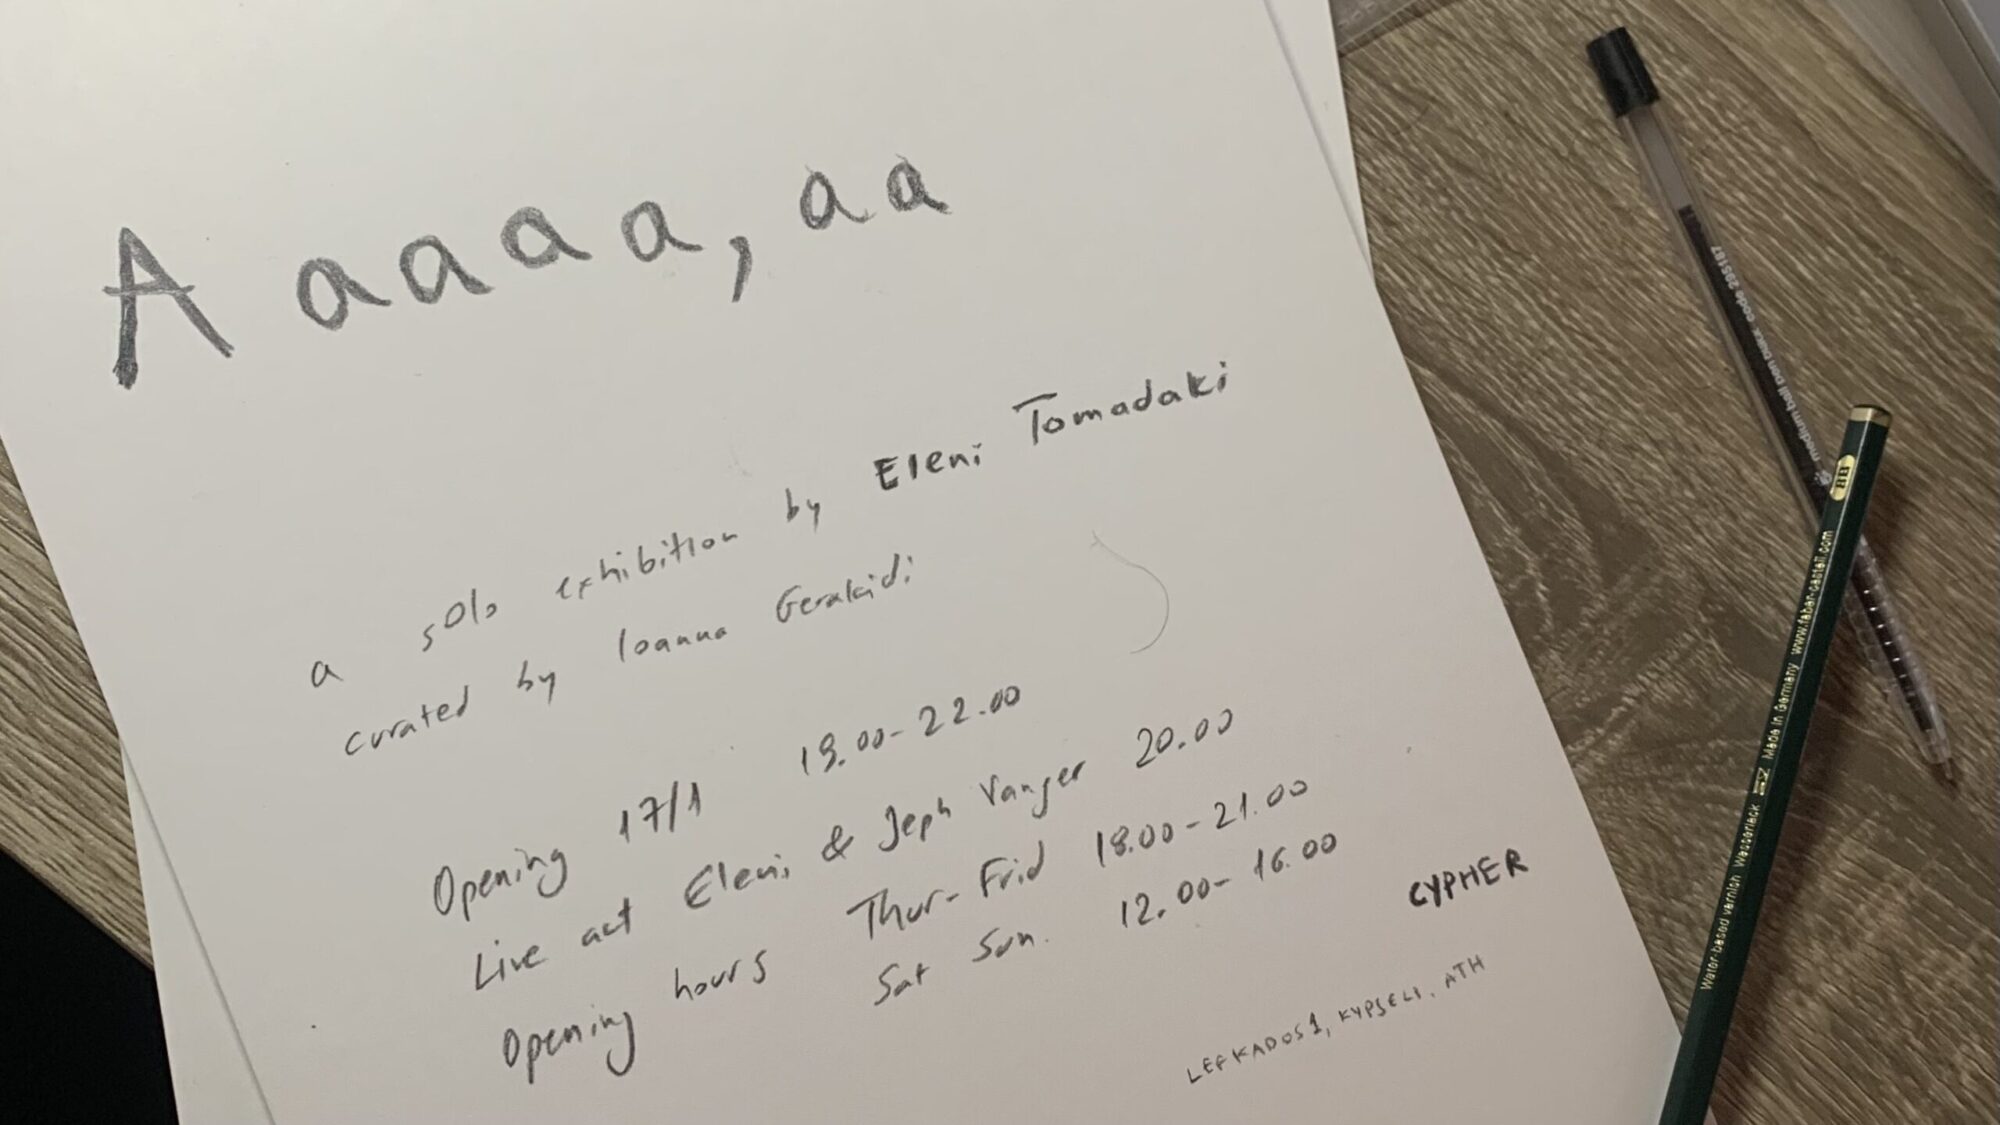 Aaaaa, aa
a solo exhibition by Eleni Tomadaki
curated by Ioanna Gerakidi
Opening 17/1 19.00-22.00
Live act Eleni & Jeph Vanger 20.00
Opening hours Thur-Frid 18.00-21.00
Sat Sun. 12.00-16.00
CYPHER
LEFKADOS 1, KYPSELI, ATH
medium ball pen black code 295187
8B
Water-based varnish Wasserlack Made in Germany www.faber-castell.com